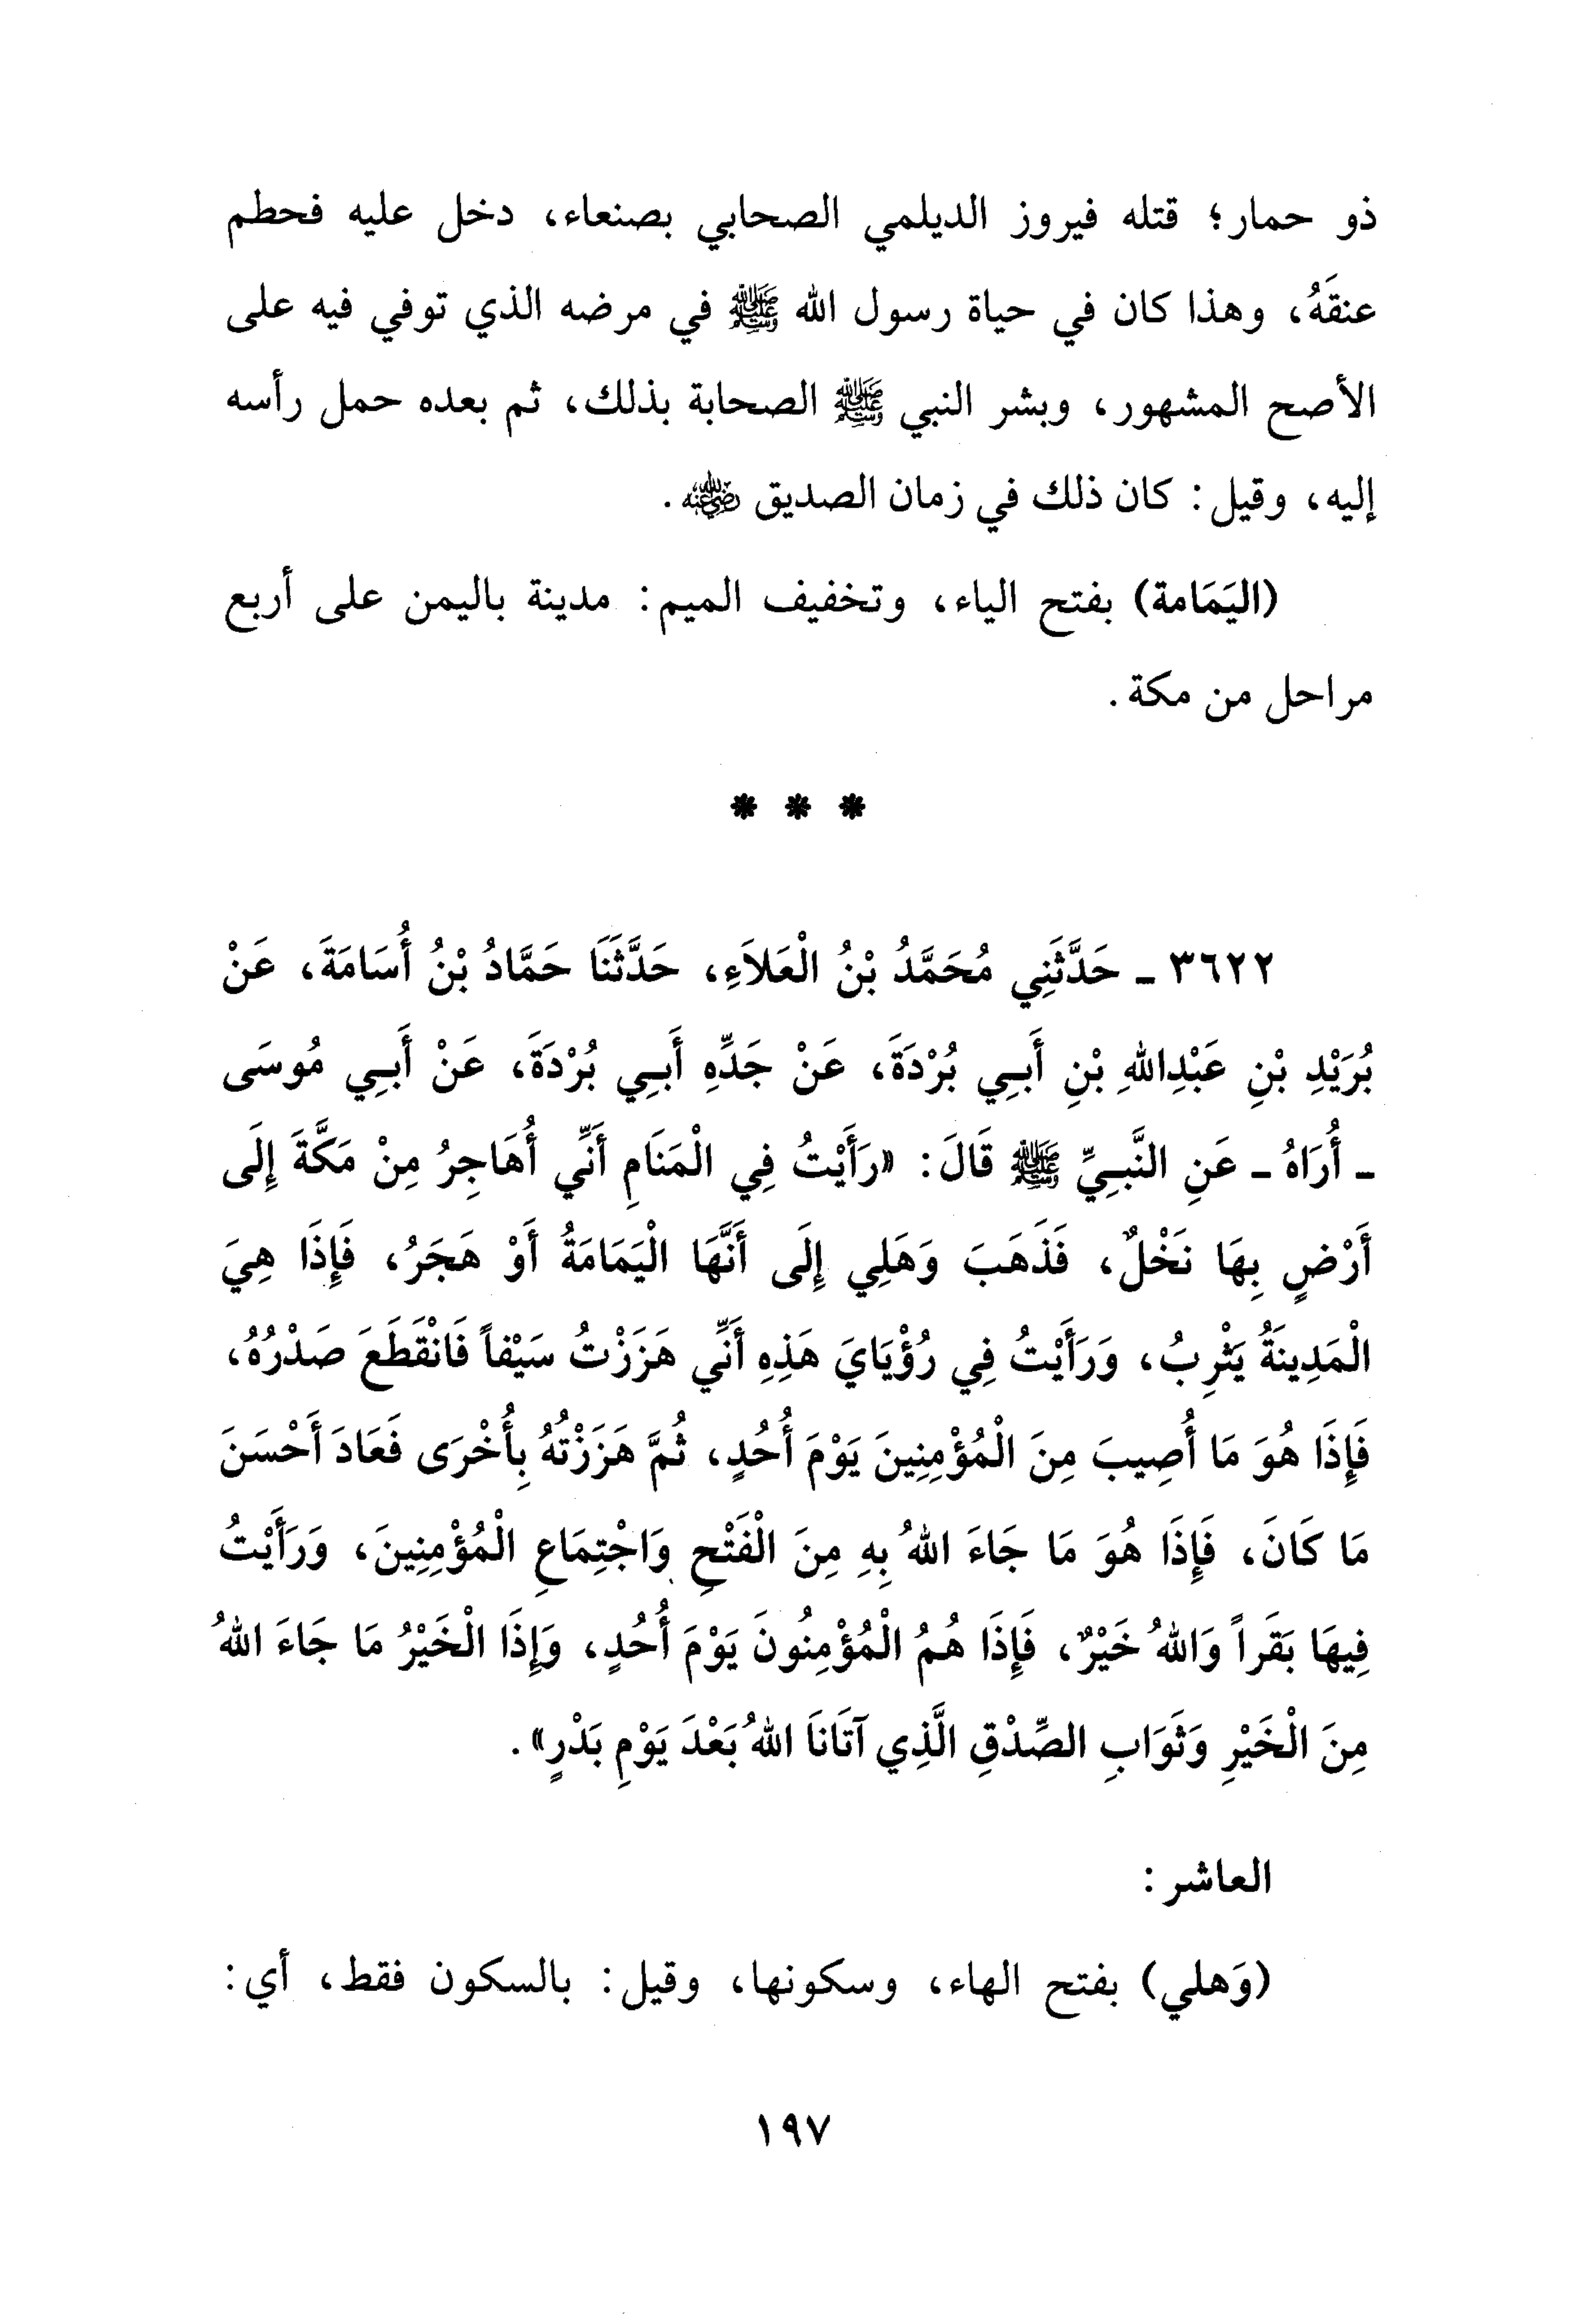 ذو حمار؛ قتله فيروز الديلمي الصحابي بصنعاء، دخل عليه فحطم
عنقَهُ، وهذا كان في حياة رسول الله ﷺ في مرضه الذي توفي فيه على
الأصح المشهور، وبشر النبي ﷺ الصحابة بذلك، ثم بعده حمل رأسه
إليه، وقيل: كان ذلك في زمان الصديق رضي الله عنه.
(اليَمَامة) بفتح الياء، وتخفيف الميم: مدينة باليمن على أربع
مراحل من مكة.
* * *
٣٦٢٢ - حَدَّثَنِي مُحَمَّدُ بْنُ الْعَلاَءِ، حَدَّثَنَا حَمَّادُ بْنُ أُسَامَةَ، عَنْ
بُرَيْدِ بْنِ عَبْدِاللهِ بْنِ أَبِي بُرْدَةَ، عَنْ جَدِّهِ أَبِي بُرْدَةَ، عَنْ أَبِي مُوسَى
- أُرَاهُ - عَنِ النَّبِيِّ ﷺ قَالَ: «رَأَيْتُ فِي الْمَنَامِ أَنِّي أُهَاجِرُ مِنْ مَكَّةَ إِلَى
أَرْضٍ بِهَا نَخْلٌ، فَذَهَبَ وَهَلِي إِلَى أَنَّهَا الْيَمَامَةُ أَوْ هَجَرُ، فَإِذَا هِيَ
الْمَدِينَةُ يَثْرِبُ، وَرَأَيْتُ فِي رُؤْيَايَ هَذِهِ أَنِّي هَزَزْتُ سَيْفاً فَانْقَطَعَ صَدْرُهُ،
فَإِذَا هُوَ مَا أُصِيبَ مِنَ الْمُؤْمِنِينَ يَوْمَ أُحُدٍ، ثُمَّ هَزَزْتُهُ بِأُخْرَى فَعَادَ أَحْسَنَ
مَا كَانَ، فَإِذَا هُوَ مَا جَاءَ اللهُ بِهِ مِنَ الْفَتْحِ وَاجْتِمَاعِ الْمُؤْمِنِينَ، وَرَأَيْتُ
فِيهَا بَقَراً وَاللهُ خَيْرٌ، فَإِذَا هُمُ الْمُؤْمِنُونَ يَوْمَ أُحُدٍ، وَإِذَا الْخَيْرُ مَا جَاءَ اللهُ
مِنَ الْخَيْرِ وَثَوَابِ الصِّدْقِ الَّذِي آتَانَا اللهُ بَعْدَ يَوْمِ بَدْرٍ».
العاشر:
(وَهلي) بفتح الهاء، وسكونها، وقيل: بالسكون فقط، أي:
١٩٧